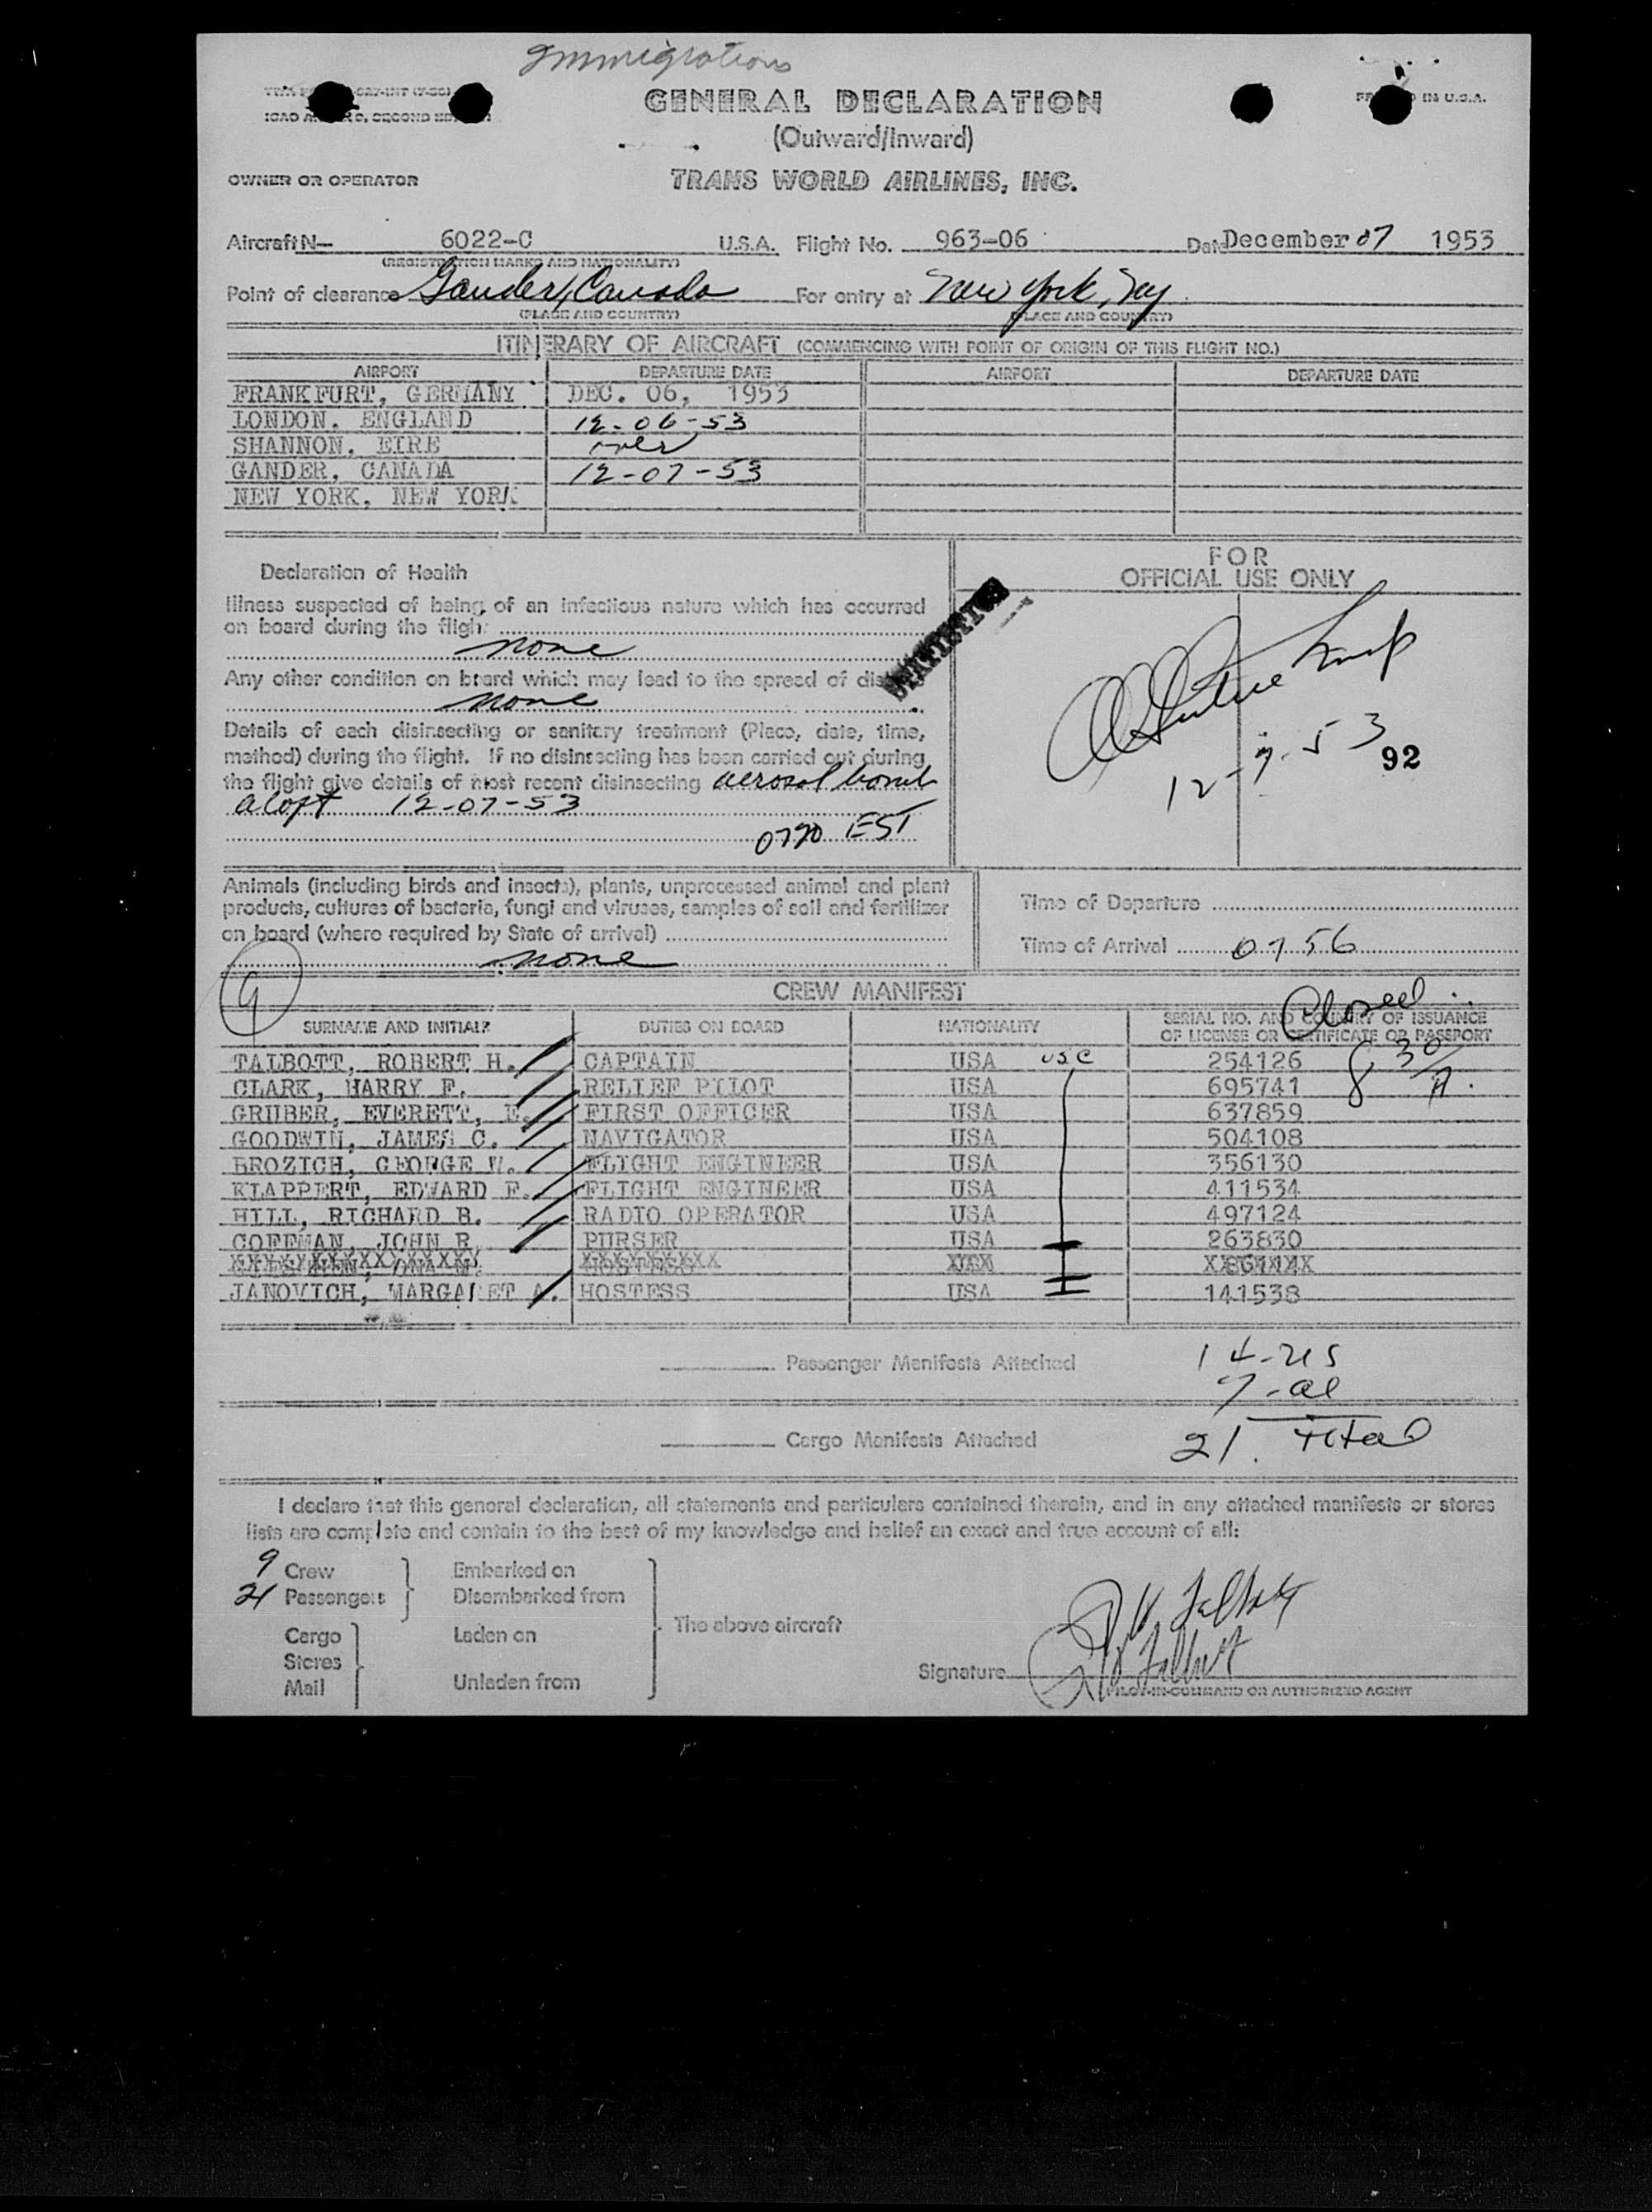 Immigrations
GENERAL DECLARATION
(Outward/Inward)
IN U.S.A.
OWNER OR OPERATOR
TRANS WORLD AIRLINES, INC.
Aircraft N— 6022-C U.S.A. Flight No. 963-06 Date December 07 1953
(REGISTRATION MARKS AND NATIONALITY)
Point of clearance Gander, Canada For entry at New York, Ny.
(PLACE AND COUNTRY) (PLACE AND COUNTRY)
ITINERARY OF AIRCRAFT (COMMENCING WITH POINT OF ORIGIN OF THIS FLIGHT NO.)
AIRPORT DEPARTURE DATE AIRPORT DEPARTURE DATE
FRANKFURT, GERMANY DEC. 06, 1953
LONDON. ENGLAND 12-06-53
SHANNON, EIRE over
GANDER, CANADA 12-07-53
NEW YORK, NEW YORK
Declaration of Health
FOR
OFFICIAL USE ONLY
Illness suspected of being of an infectious nature which has occurred
on board during the flight
none
Any other condition on board which may lead to the spread of
none
STATISTICS
Details of each disinsecting or sanitary treatment (Place, date, time,
method) during the flight. If no disinsecting has been carried out during
the flight give details of most recent disinsecting aerosol bomb
aloft 12-07-53
EST
Insp
12-7-53
92
Animals (including birds and insects), plants, unprocessed animal and plant
products, cultures of bacteria, fungi and viruses, samples of soil and fertilizer
on board (where required by State of arrival)
none
Time of Departure
Time of Arrival 0756
9
CREW MANIFEST
Closed
8 30/A.
SURNAME AND INITIALS DUTIES ON BOARD NATIONALITY SERIAL NO. AND COUNTRY OF ISSUANCE
OF LICENSE OR CERTIFICATE OR PASSPORT
TALBOTT, ROBERT H. CAPTAIN USA USC 254126
CLARK, HARRY F. RELIEF PILOT USA 695741
GRUBER, EVERETT, E. FIRST OFFICER USA 637859
GOODWIN, JAMES C. NAVIGATOR USA 504108
BROZICH, GEORGE W. FLIGHT ENGINEER USA 356130
KLAPPERT, EDWARD F. FLIGHT ENGINEER USA 411534
HILL, RICHARD B. RADIO OPERATOR USA 497124
COFFMAN, JOHN R PURSER USA 263830
JANOVICH, MARGARET A. HOSTESS USA 141538
Passenger Manifests Attached
14-us
7-al
21. total
Cargo Manifests Attached
I declare that this general declaration, all statements and particulars contained therein, and in any attached manifests or stores
lists are complete and contain to the best of my knowledge and belief an exact and true account of all:
9 Crew Embarked on
21 Passengers Disembarked from
The above aircraft
Cargo Laden on
Stores
Mail Unladen from
R H Talbott
Signature R H Talbott
PILOT-IN-COMMAND OR AUTHORIZED AGENT